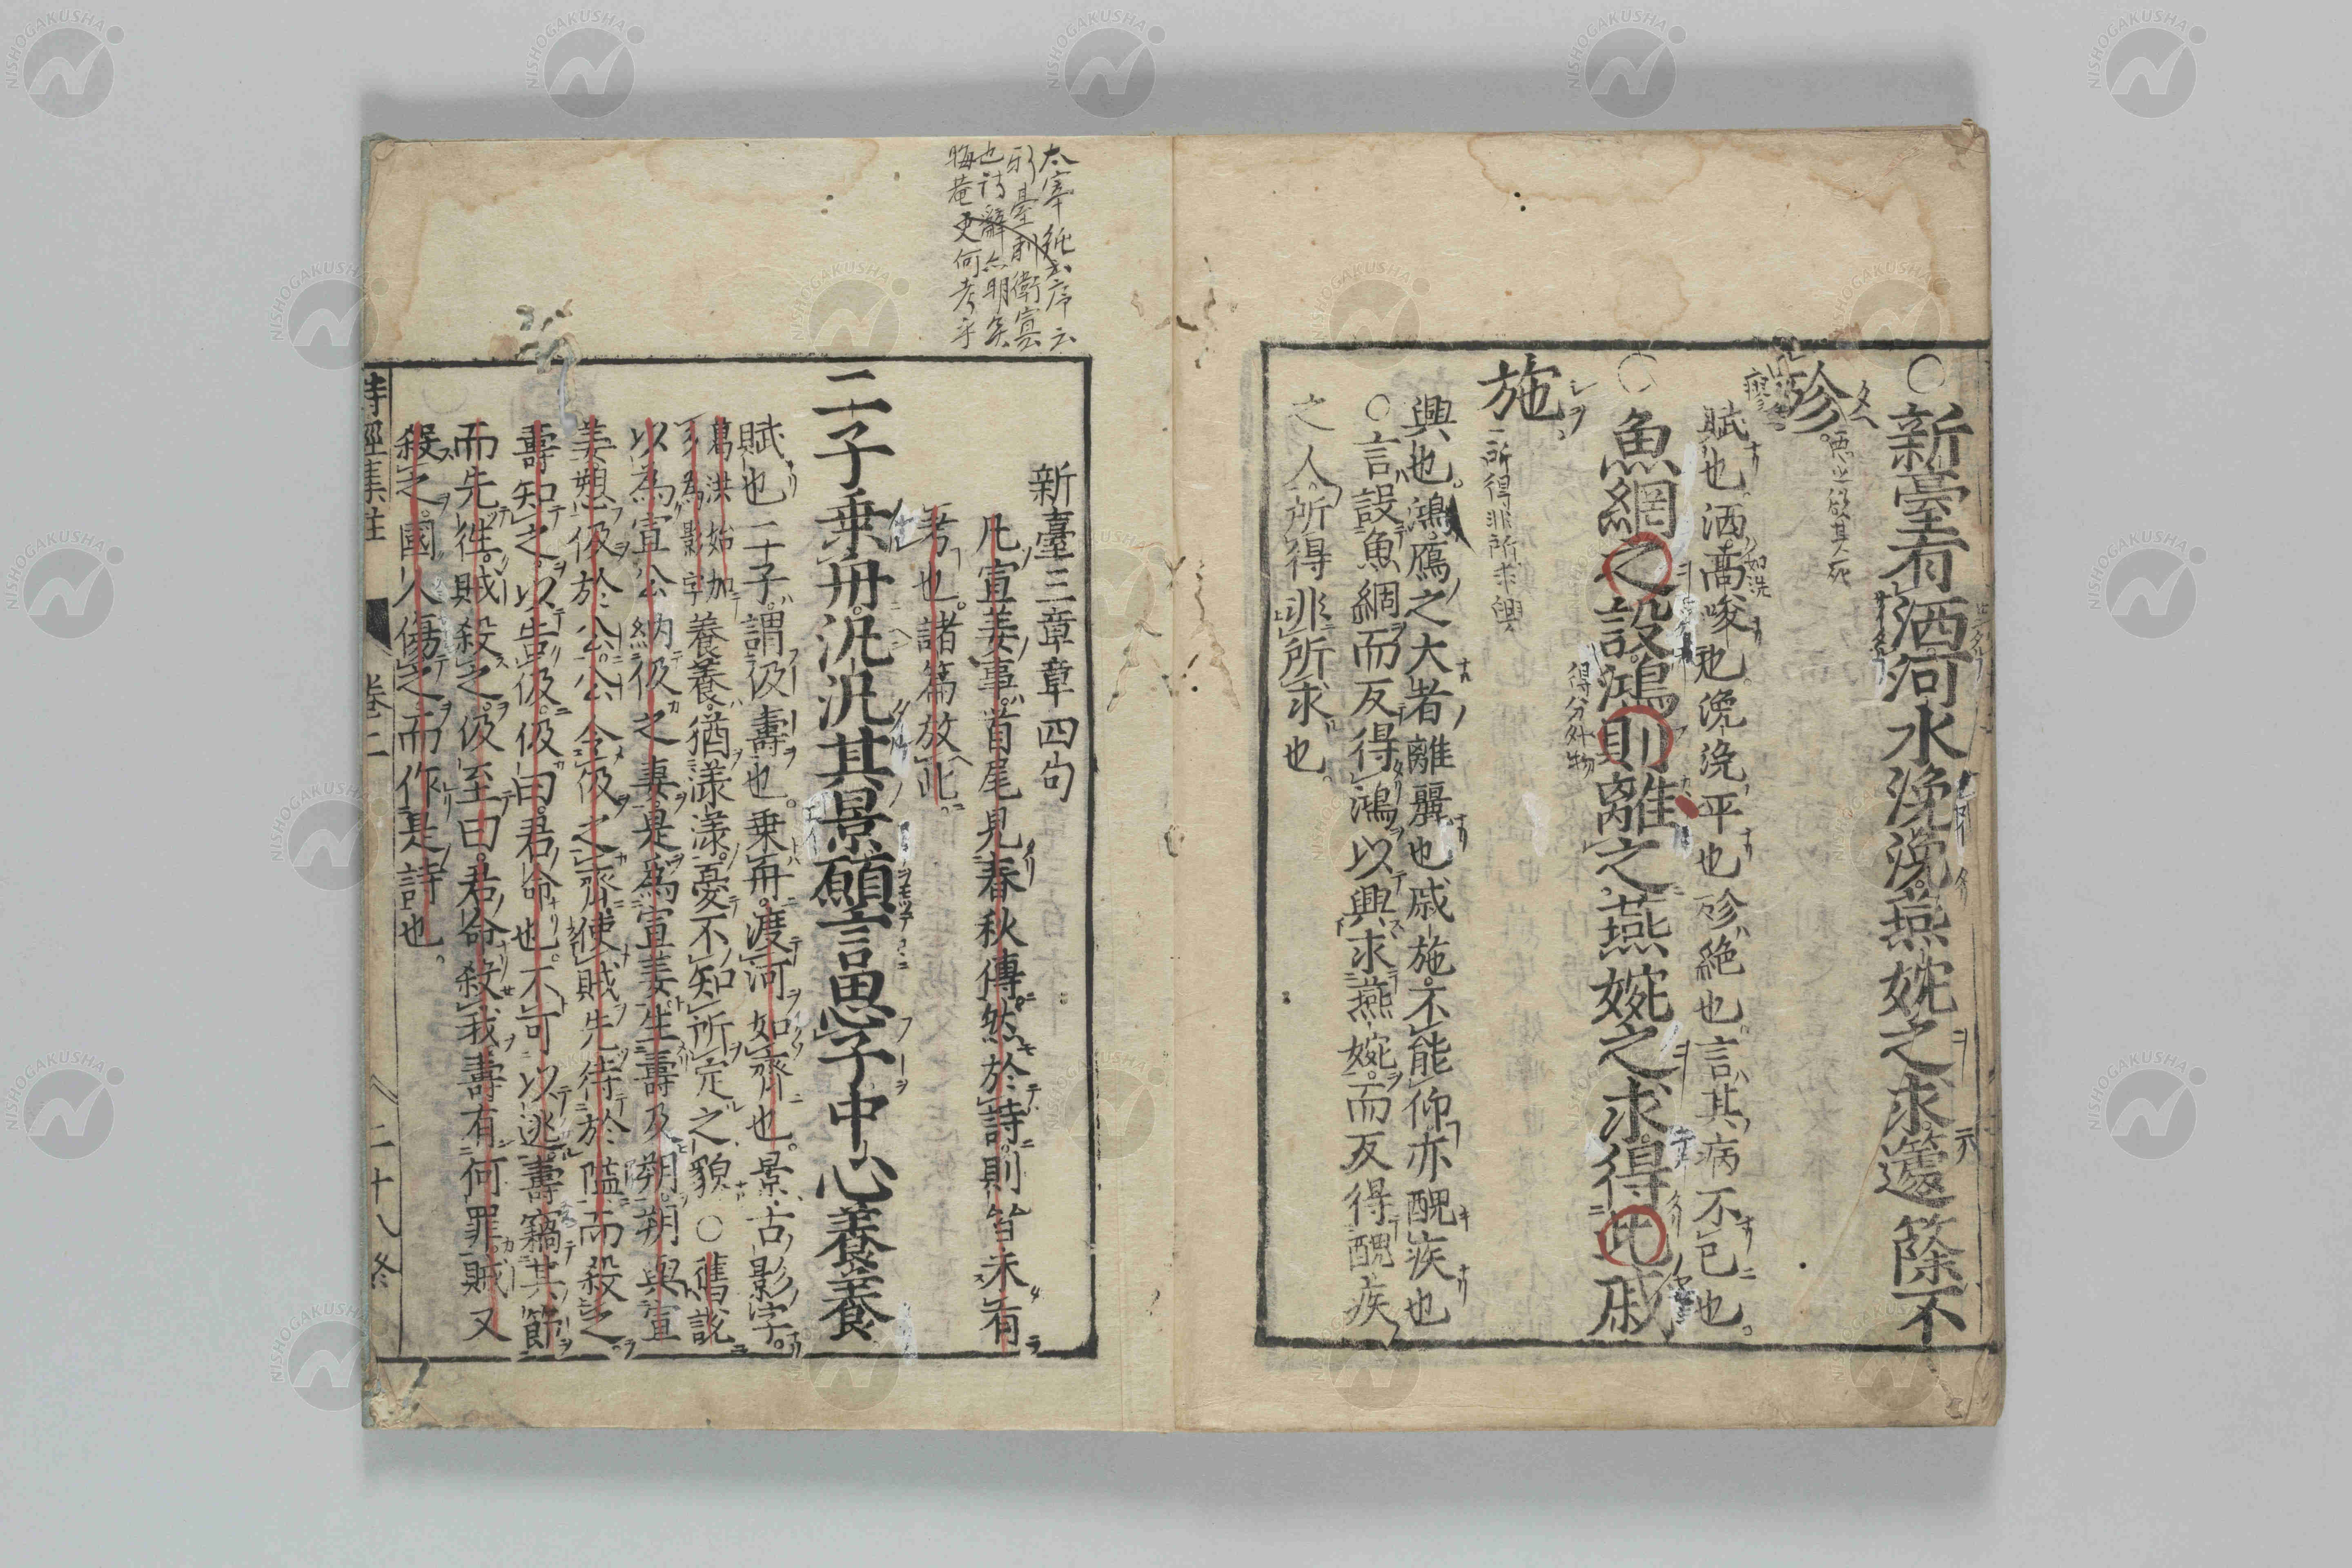 ○新臺有洒河水浼浼燕婉之求籧篨不
殄
惡之欲其死
賦也洒高峻也浼浼平也殄絶也言其病不已也
如洗
○魚網之設鴻則離之燕婉之求得此戚
得分外物
施
所得非所求興
興也鴻鴈之大者離麗也戚施不能仰亦醜疾也
○言設魚網而反得鴻以興求燕婉而反得醜疾
之人所得非所求也
太宰純云序云
新臺刺衛宣公
也詩辭亦明矣
晦菴更何考乎
新臺三章章四句
凡宣姜事首尾見春秋傳然於詩則皆未有
考也諸篇放此
二子乗舟汎汎其景願言思子中心養養
賦也二子謂伋壽也乗舟渡河如齊也景古影字
葛洪始加
彡為影字
養養猶漾漾憂不知所定之貌○舊説
以為宣公納伋之妻是為宣姜生壽及朔朔與宣
姜愬伋於公公令伋之齊使賊先待於隘而殺之
壽知之以告伋伋曰君命也不可以逃壽竊其節
而先往賊殺之伋至曰君命殺我壽有何罪賊又
殺之國人傷之而作是詩也
詩經集註 卷二 二十八終